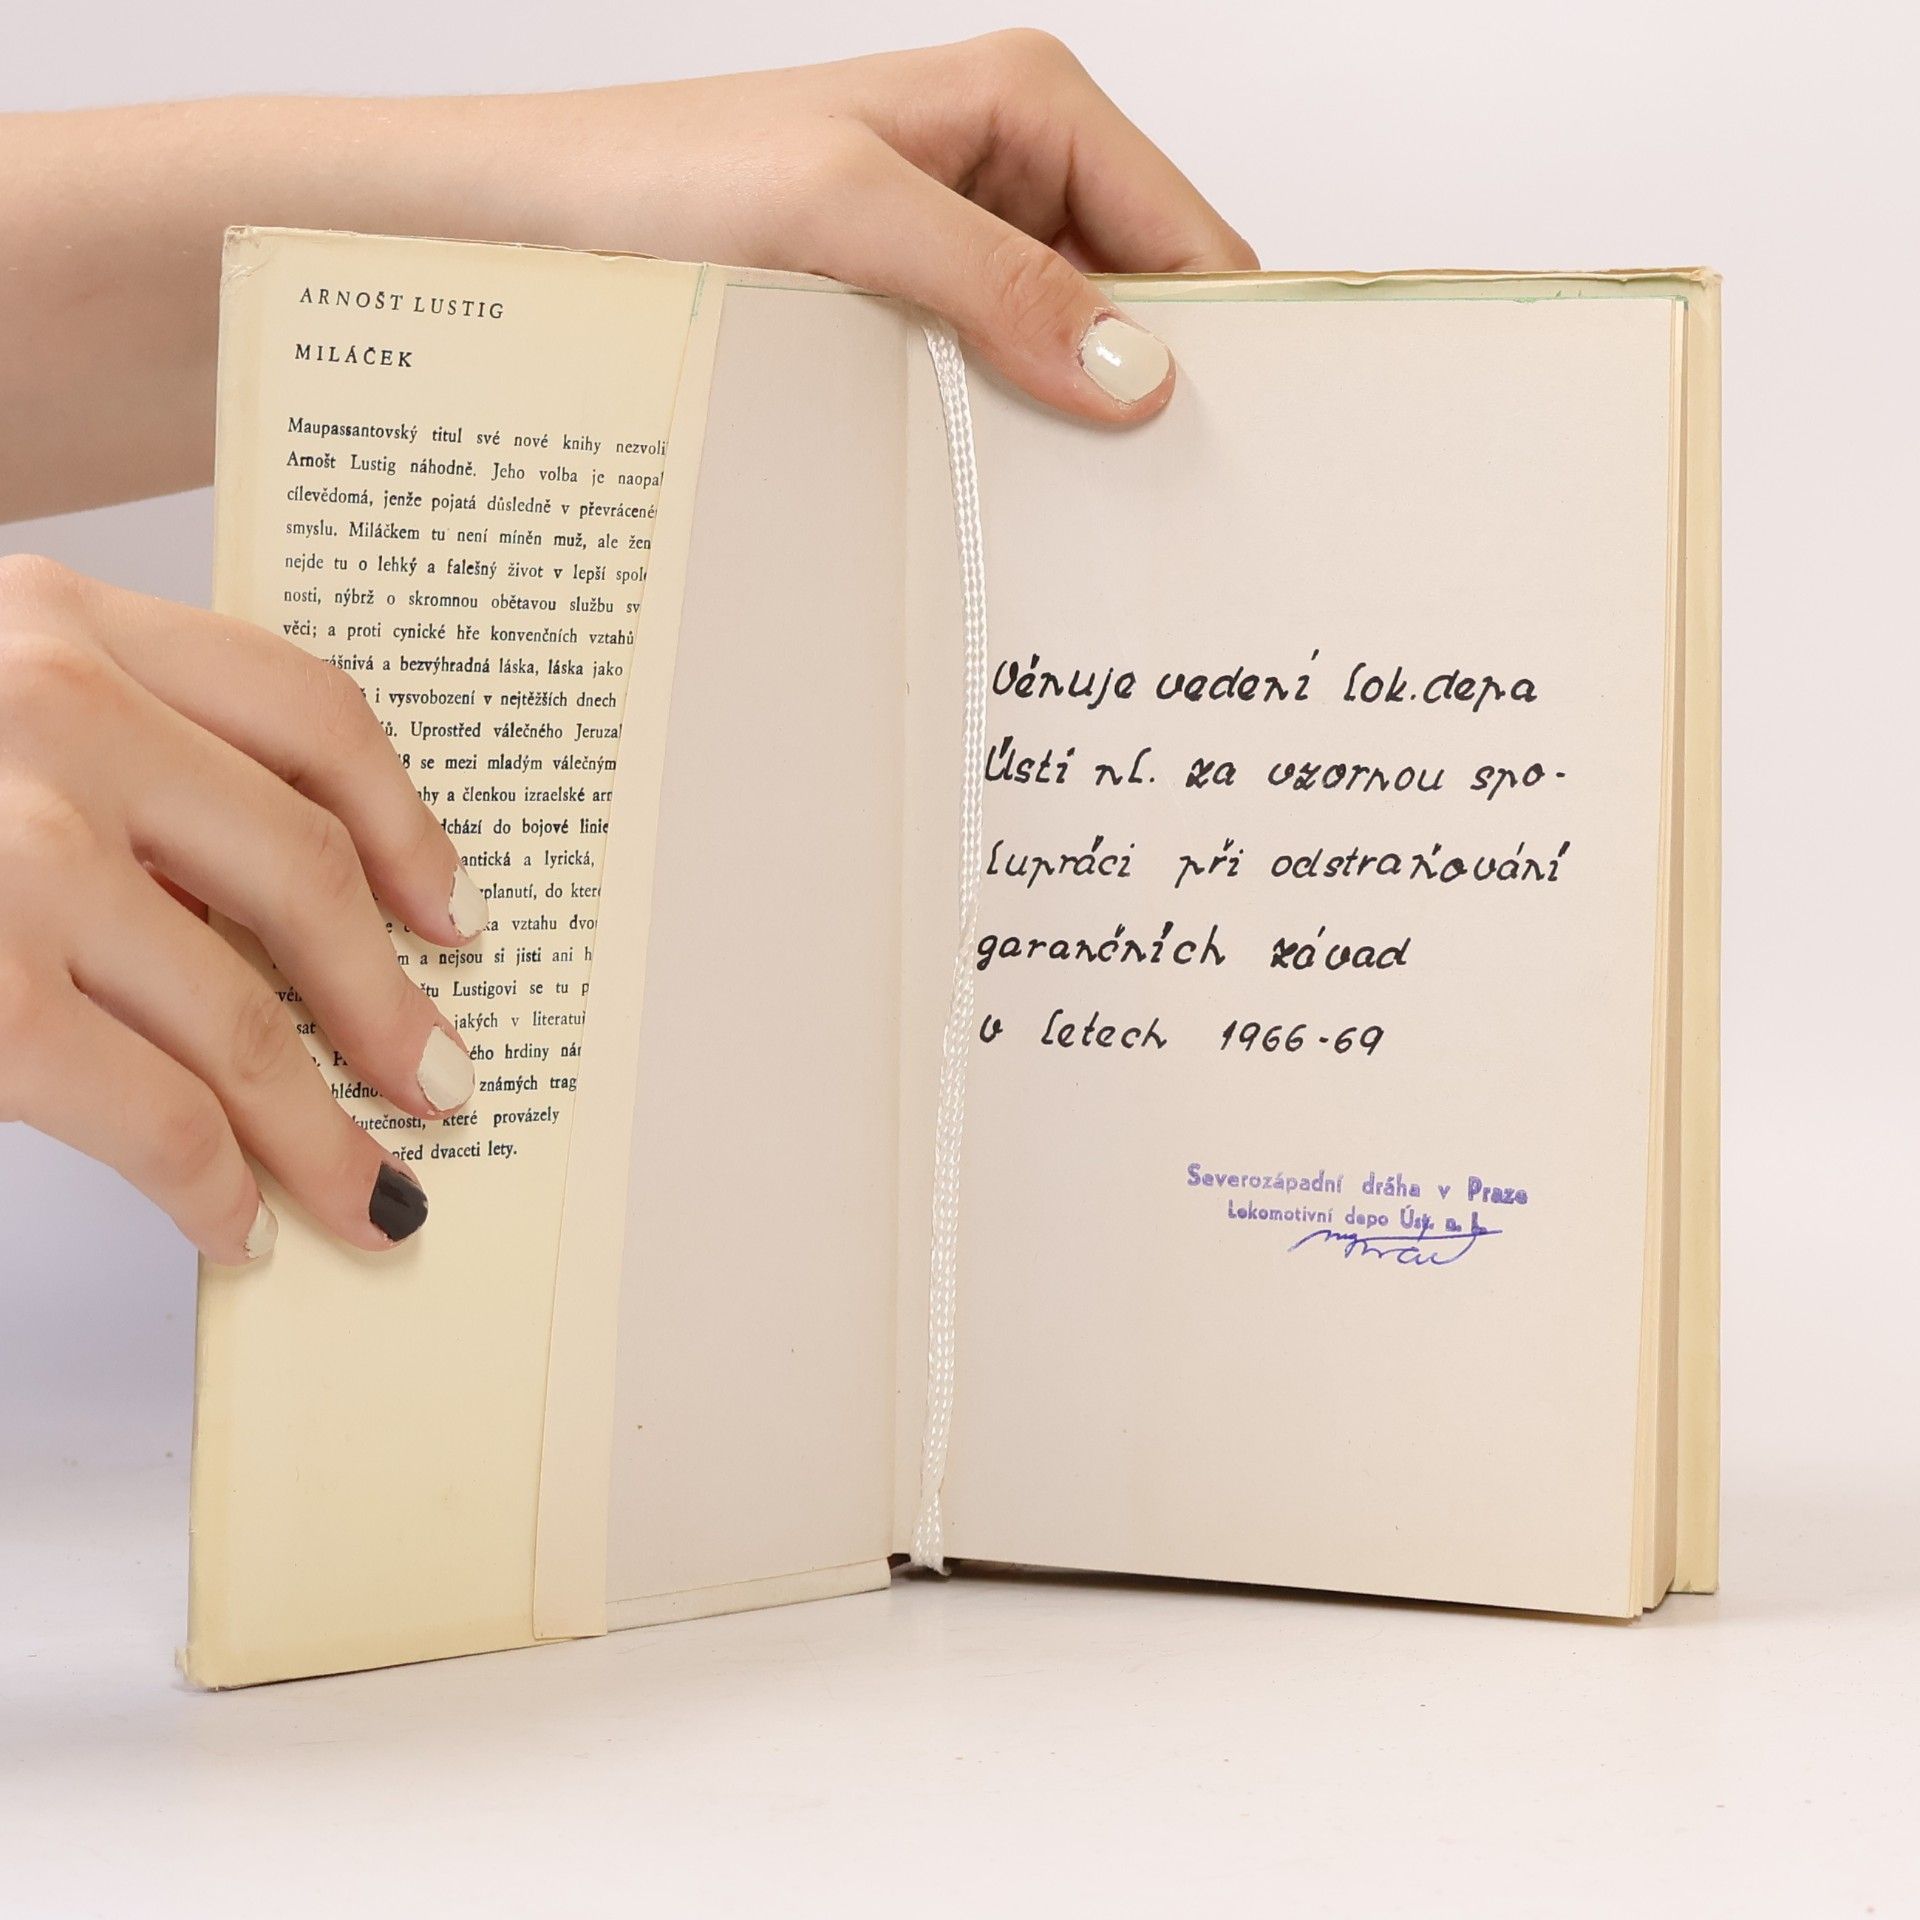 ARNOŠT LUSTIG
MILÁČEK
Maupassantovský titul své nové knihy nezvoli
Arnošt Lustig náhodně. Jeho volba je naopa
cílevědomá, jenže pojatá důsledně v převrácené
smyslu. Miláčkem tu není míněn muž, ale žen
nejde tu o lehký a falešný život v lepší spol
nosti, nýbrž o skromnou obětavou službu sv
věci; a proti cynické hře konvenčních vztahů
a bezvýhradná láska, láska jako
i vysvobození v nejtěžších dnech
Uprostřed válečného Jeruzal
se mezi mladým válečným
a členkou izraelské arm
do bojové linie
a lyrická,
do které
vztahu dvo
a nejsou si jisti ani h
Lustigovi se tu p
jakých v literatu
hrdiny
známých trag
které provázely
před dvaceti lety.
Věnuje vedení lok. depa
Ústí nL. za vzornou spo-
lupráci při odstraňování
garančních závad
v letech 1966-69
Severozápadní dráha v Praze
Lokomotivní depo Úst. n. L.